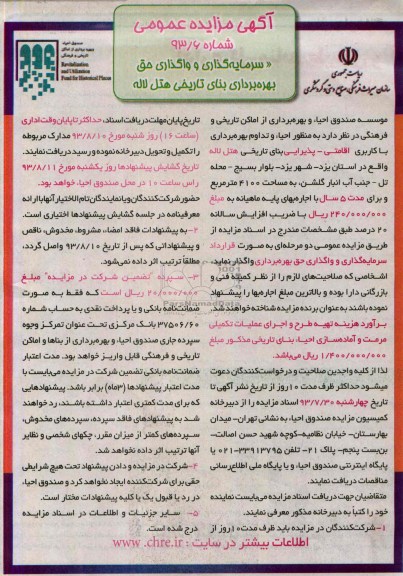 آگهی مزایده عمومی
شماره ۹۳/۶
« سرمایه‌گذاری و واگذاری حق
بهره‌برداری بنای تاریخی هتل لاله
ریاست جمهوری
سازمان میراث فرهنگی، صنایع دستی و گردشگری
صندوق احیاء و
بهره برداری از اماکن
تاریخی و فرهنگی
Revitalization
and Utilization
Fund for Historical Places
موسسه صندوق احیاء و بهره‌برداری از اماکن تاریخی و
فرهنگی در نظر دارد به منظور احیاء و تداوم بهره‌برداری
با کاربری اقامتی - پذیرایی بنای تاریخی هتل لاله
واقع در استان یزد- شهر یزد- بلوار بسیج - محله
تل - جنب آب انبار گلشن، به مساحت ۴۱۰۰ مترمربع
و برای مدت ۵ سال با اجاره‌بهای پایه ماهیانه به مبلغ
۲۴۰/۰۰۰/۰۰۰ ریال با ضریب افزایش سالانه
۲۰ درصد طبق مشخصات مندرج در اسناد مزایده از
طریق مزایده عمومی دو مرحله‌ای به صورت قرارداد
سرمایه‌گذاری و واگذاری حق بهره‌برداری واگذار نماید.
اشخاصی که صلاحیت‌های لازم را از نظر کمیته فنی و
بازرگانی دارا بوده و بالاترین مبلغ اجاره‌بها را پیشنهاد
نموده باشند به عنوان برنده مزایده شناخته خواهند شد.
برآورد هزینه تهیه طرح و اجرای عملیات تکمیلی
مرمت و آماده‌سازی احیاء بنای تاریخی مذکور مبلغ
۱/۴۰۰/۰۰۰/۰۰۰ ریال می‌باشد.
لذا از کلیه واجدین صلاحیت و درخواست‌کنندگان دعوت
میشود حداکثر ظرف مدت ۱۰ روز از تاریخ نشر آگهی تا
تاریخ چهارشنبه ۹۳/۷/۳۰ اسناد مزایده را از دبیرخانه
کمیسیون مزایده صندوق احیاء به نشانی تهران- میدان
بهارستان- خیابان نظامیه-کوچه شهید حسن اصالت-
بن‌بست پنجم- پلاک ۲۱- تلفن ۳۳۹۱۳۷۹۵-۰۲۱ یا
پایگاه اینترنتی صندوق احیاء و یا پایگاه ملی اطلاع‌رسانی
مناقصات دریافت نمایند.
متقاضیان جهت دریافت اسناد مزایده می‌بایست نماینده
خود را کتباً به دبیرخانه مذکور معرفی نمایند.
۱- شرکت‌کنندگان در مزایده باید ظرف مدت ۱۰ روز از
تاریخ پایان مهلت دریافت اسناد، حداکثر تا پایان وقت اداری
(ساعت ۱۶) روز شنبه مورخ ۹۳/۸/۱۰ مدارک مربوطه
را تکمیل و تحویل دبیرخانه نموده و رسید دریافت نمایند.
تاریخ گشایش پیشنهادها روز یکشنبه مورخ ۹۳/۸/۱۱
راس ساعت ۱۰ در محل صندوق احیاء خواهد بود.
حضور شرکت‌کنندگان و یا نمایندگان تام الاختیار آنها با ارائه
معرفینامه در جلسه گشایش پیشنهادها اختیاری است.
۲- به پیشنهادات فاقد امضاء، مشروط، مخدوش، ناقص
و پیشنهاداتی که پس از تاریخ ۹۳/۸/۱۰ واصل گردد،
مطلقاً ترتیب اثر داده نمی‌شود.
۳- سپرده "تضمین شرکت در مزایده" مبلغ
۲۰/۰۰۰/۰۰۰ ریال است که فقط به صورت
ضمانتنامه بانکی و یا پرداخت نقدی به حساب شماره
۳۷۵۰۶/۶۰ بانک مرکزی تحت عنوان تمرکز وجوه
سپرده جاری صندوق احیاء و بهره‌برداری از بناها و اماکن
تاریخی و فرهنگی قابل واریز خواهد بود. مدت اعتبار
ضمانت‌نامه بانکی تضمین شرکت در مزایده می‌بایست با
مدت اعتبار پیشنهادها (۳ماه) برابر باشد. پیشنهادهایی
که برای مدت کمتری اعتبار داشته باشند، رد خواهند
شد به پیشنهادهای فاقد سپرده، سپرده‌های مخدوش،
سپرده‌های کمتر از میزان مقرر، چکهای شخصی و نظایر
آنها ترتیب اثر داده نخواهد شد.
۴- شرکت در مزایده و دادن پیشنهاد تحت هیچ شرایطی
حقی برای شرکت‌کننده ایجاد نخواهد کرد و صندوق احیاء،
در رد یا قبول یک یا کلیه پیشنهادات مختار است.
۵- سایر جزئیات و اطلاعات در اسناد مزایده
درج شده است.
اطلاعات بیشتر در سایت : www.chre.ir